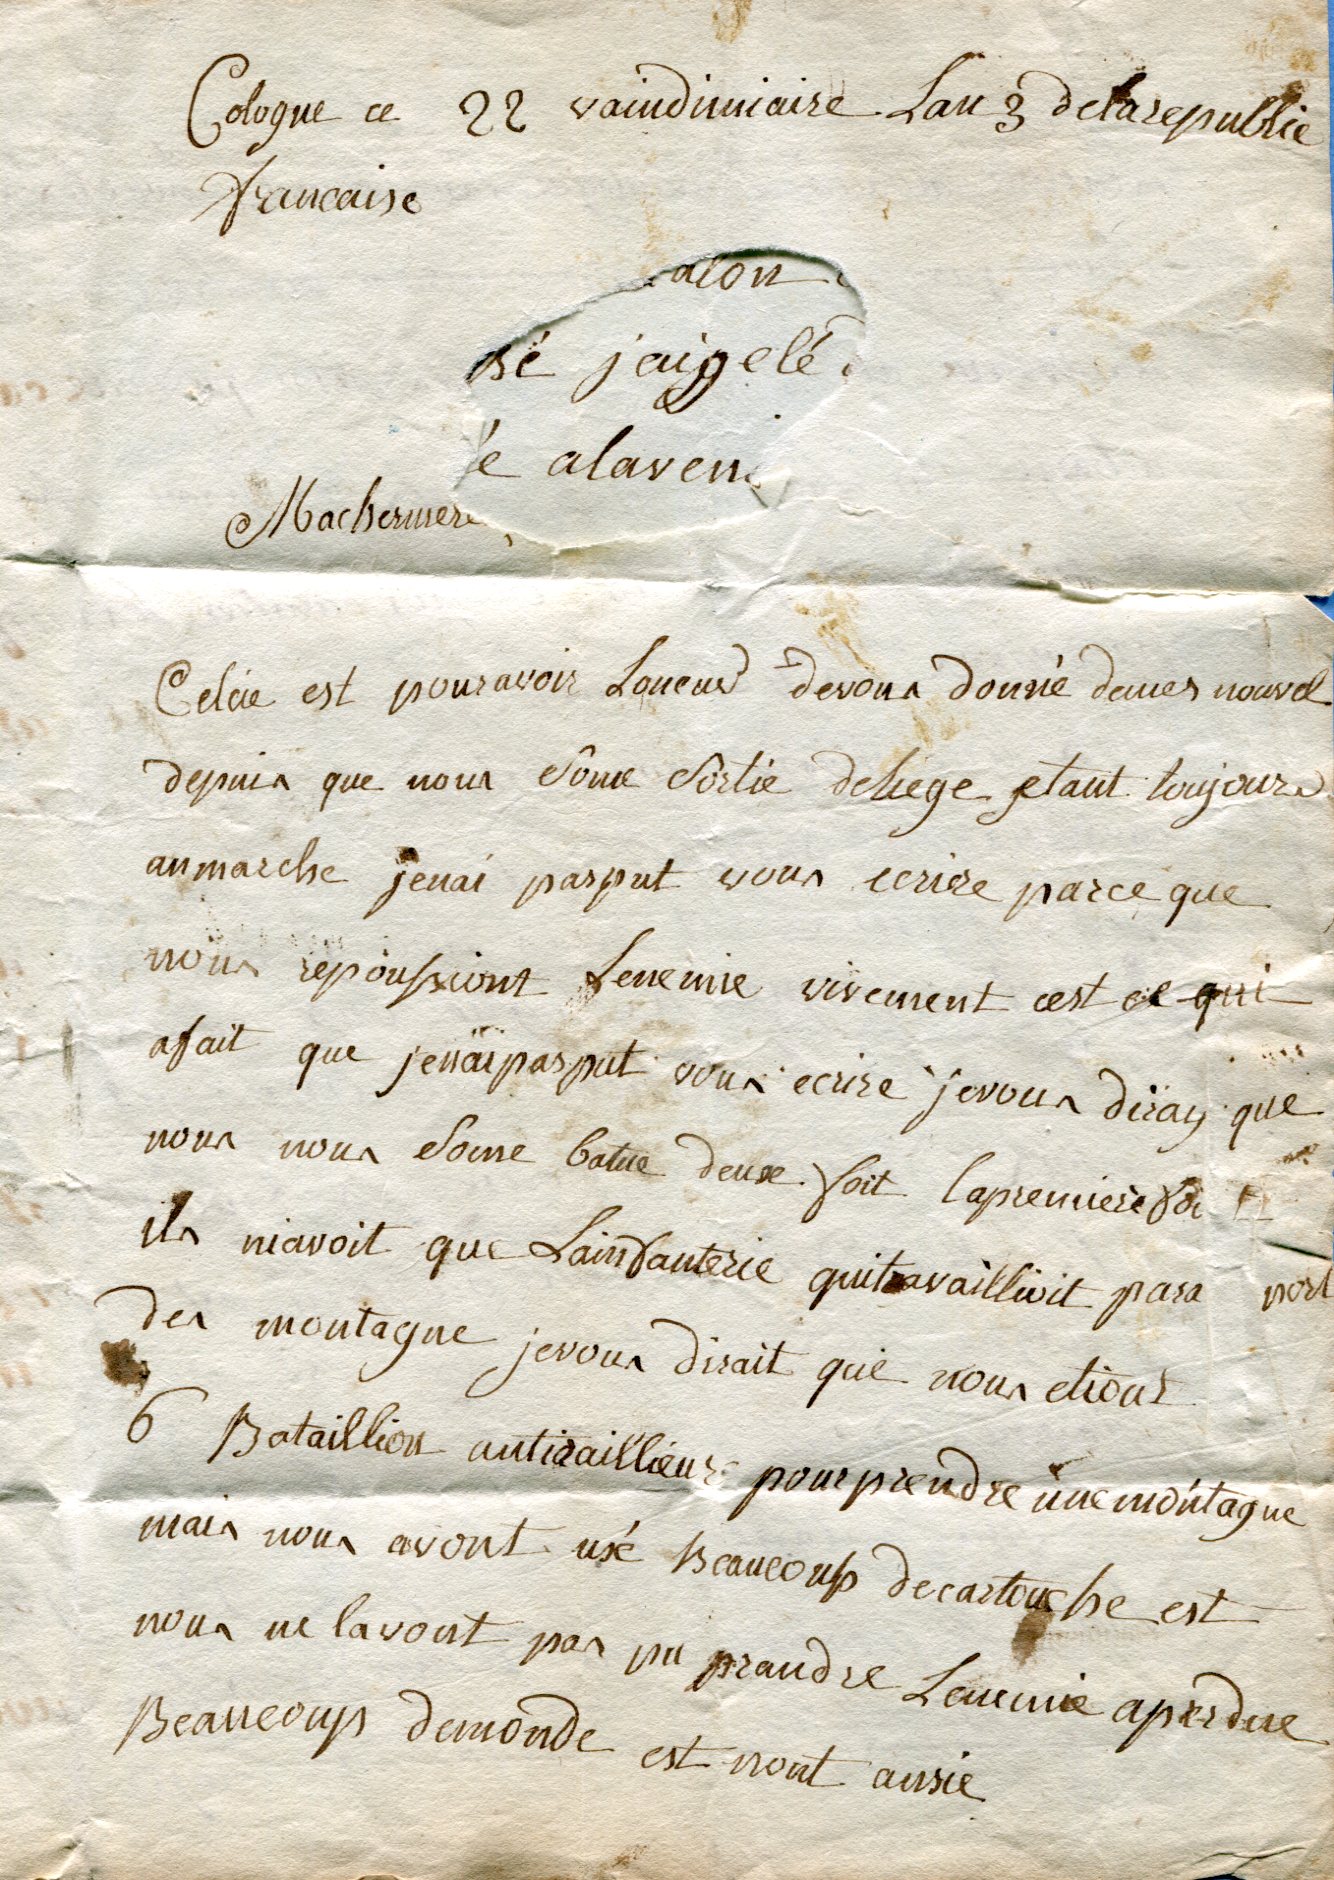 Cologne ce 22 vaindimiaire Lan 3 delarepublic
francaise
alon
sé jaigelé
é alaven
Machermere
Celcie est pouravoir Loneur devous donnié demes nouvel
depuis que nous sôme sortie deliege etant toujours
anmarche jenai pasput vous ecrire parce que
nous repoussiont Lenemie vivement cest ce qui
afait que jenaipasput vous ecrire jevous diray que
nous nous some batue deux foit lapremiere
ils niavoit que Lainfanterie quitravaillioit para port
des montagne jevous dirait que nous etions
6 Bataillion antiraillieurs pourprendre unemontagne
mais nous avont usé Beaucoup decartouche est
nous ne lavont pas pu prandre Lenemie aperdue
Beaucoup demonde est nont ausie